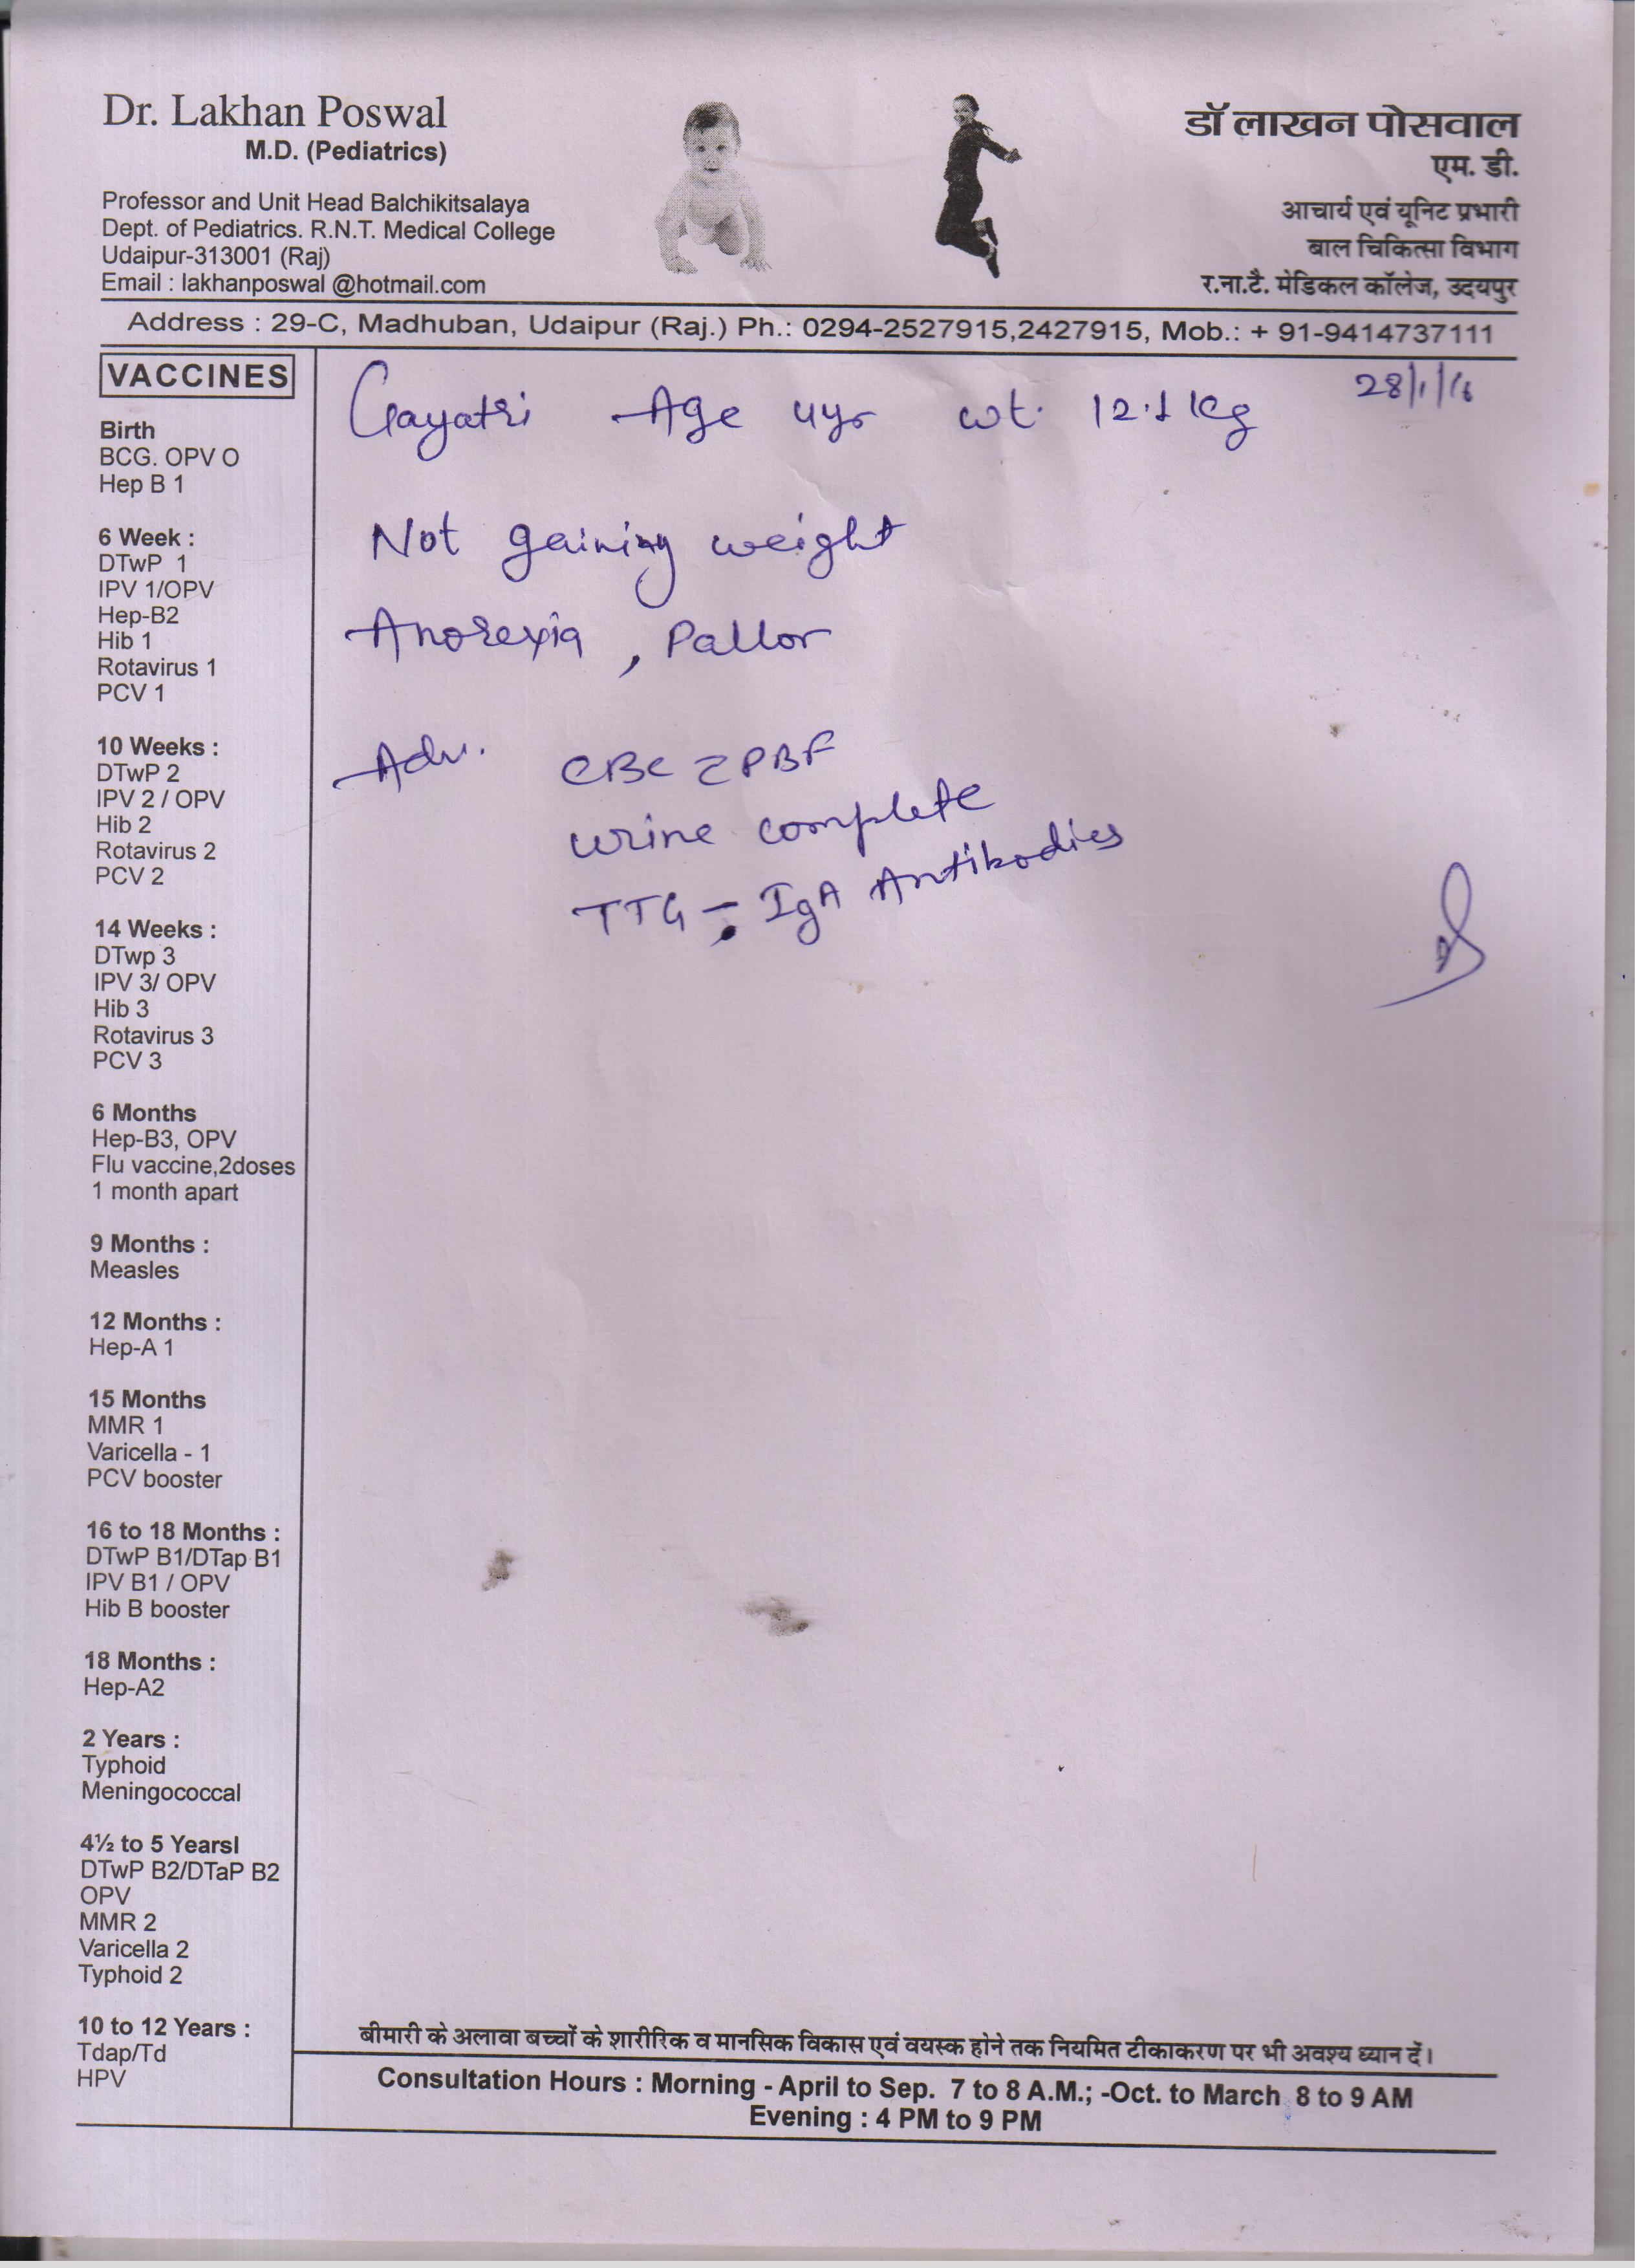 Dr. Lakhan Poswal
M.D. (Pediatrics)
Professor and Unit Head Balchikitsalaya
Dept. of Pediatrics. R.N.T. Medical College
Udaipur-313001 (Raj)
Email : lakhanposwal @hotmail.com
डॉ लाखन पोसवाल
एम. डी.
आचार्य एवं यूनिट प्रभारी
बाल चिकित्सा विभाग
र.ना.टै. मेडिकल कॉलेज, उदयपुर
Address : 29-C, Madhuban, Udaipur (Raj.) Ph.: 0294-2527915,2427915, Mob.: + 91-9414737111
VACCINES
Birth
BCG. OPV O
Hep B 1
6 Week :
DTwP 1
IPV 1/OPV
Hep-B2
Hib 1
Rotavirus 1
PCV 1
10 Weeks :
DTwP 2
IPV 2 / OPV
Hib 2
Rotavirus 2
PCV 2
14 Weeks :
DTwp 3
IPV 3/ OPV
Hib 3
Rotavirus 3
PCV 3
6 Months
Hep-B3, OPV
Flu vaccine,2doses
1 month apart
9 Months :
Measles
12 Months :
Hep-A 1
15 Months
MMR 1
Varicella - 1
PCV booster
16 to 18 Months :
DTwP B1/DTap B1
IPV B1 / OPV
Hib B booster
18 Months :
Hep-A2
2 Years :
Typhoid
Meningococcal
4½ to 5 Yearsl
DTwP B2/DTaP B2
OPV
MMR 2
Varicella 2
Typhoid 2
10 to 12 Years :
Tdap/Td
HPV
28/1/16
Gayatri Age 4yr wt. 12.1 kg
Not gaining weight
Anorexia , Pallor
Adv. CBC c PBF
urine complete
TTG - IgA Antibodies
बीमारी के अलावा बच्चों के शारीरिक व मानसिक विकास एवं वयस्क होने तक नियमित टीकाकरण पर भी अवश्य ध्यान दें।
Consultation Hours : Morning - April to Sep. 7 to 8 A.M.; -Oct. to March 8 to 9 AM
Evening : 4 PM to 9 PM